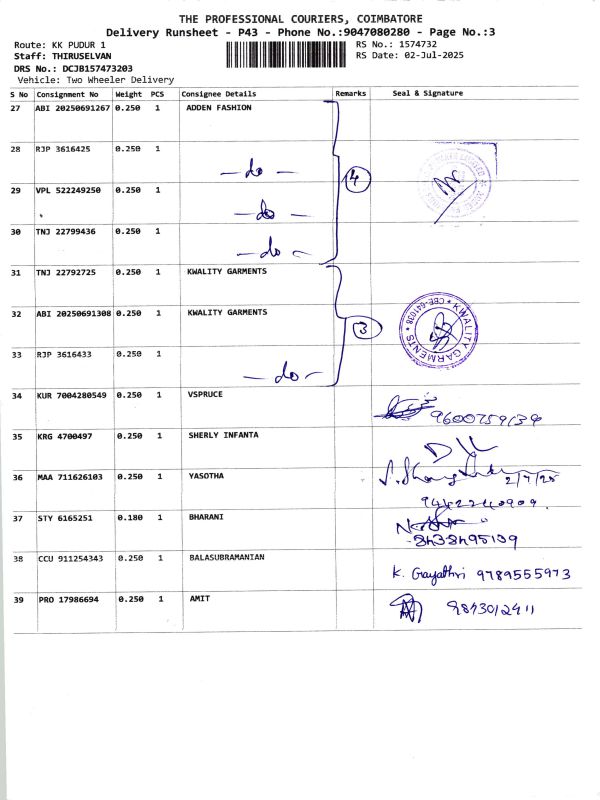 THE PROFESSIONAL COURIERS, COIMBATORE
Delivery Runsheet - P43 - Phone No.:9047080280 - Page No.:3
Route: KK PUDUR 1 RS No.: 1574732
Staff: THIRUSELVAN RS Date: 02-Jul-2025
DRS No.: DCJB157473203
Vehicle: Two Wheeler Delivery
S No Consignment No Weight PCS Consignee Details Remarks Seal & Signature
27 ABI 20250691267 0.250 1 ADDEN FASHION
28 RJP 3616425 0.250 1 - do - 4
29 VPL 522249250 0.250 1 - do -
30 TNJ 22799436 0.250 1 - do -
31 TNJ 22792725 0.250 1 KWALITY GARMENTS
32 ABI 20250691308 0.250 1 KWALITY GARMENTS 3 KWALITY GARMENTS * CBE-641038 *
33 RJP 3616433 0.250 1 - do -
34 KUR 7004280549 0.250 1 VSPRUCE
35 KRG 4700497 0.250 1 SHERLY INFANTA
36 MAA 711626103 0.250 1 YASOTHA 2/7/25
37 STY 6165251 0.180 1 BHARANI
38 CCU 911254343 0.250 1 BALASUBRAMANIAN K. Gayathri 9789555973
39 PRO 17986694 0.250 1 AMIT